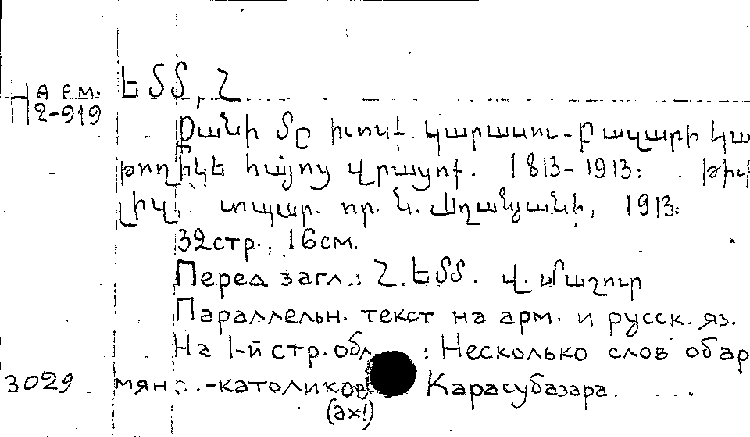 Арм. ԵՄՄ, Հ
2-919
Քանի մը խօսք Կարասու-Բազարի կա
թողիկե հայոց վրայօք. 1813-1913: Թիֆ
լիս. տպար. որ. Ն. Աղանեանի, 1913.
32стр., 16см.
Перед загл.: Հ. ԵՄՄ. Վ.
Параллельн. текст на арм. и русск. яз.
На 1-й стр. обл.: Несколько слов об ар
3029 мяно-католиков Карасубазара
(ах!)